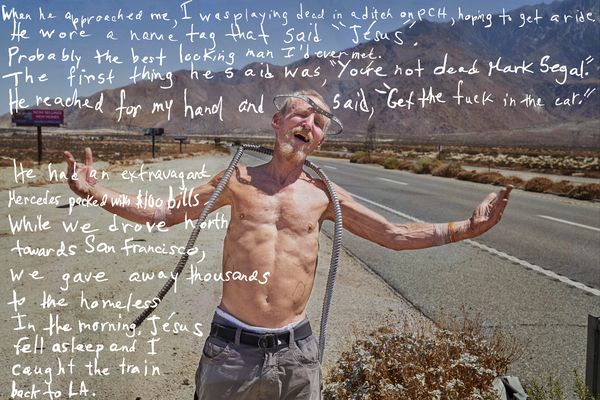 When he approached me, I was playing dead in a ditch on PCH, hoping to get a ride.
He wore a name tag that said "Jésus".
Probably the best looking man I'd ever met.
The first thing he said was, "You're not dead Mark Segal."
He reached for my hand and said, "Get the fuck in the car."
He had an extravagant
Mercedes packed with $100 bills
While we drove north
towards San Francisco,
we gave away thousands
to the homeless
In the morning, Jésus
fell asleep and I
caught the train
back to LA.